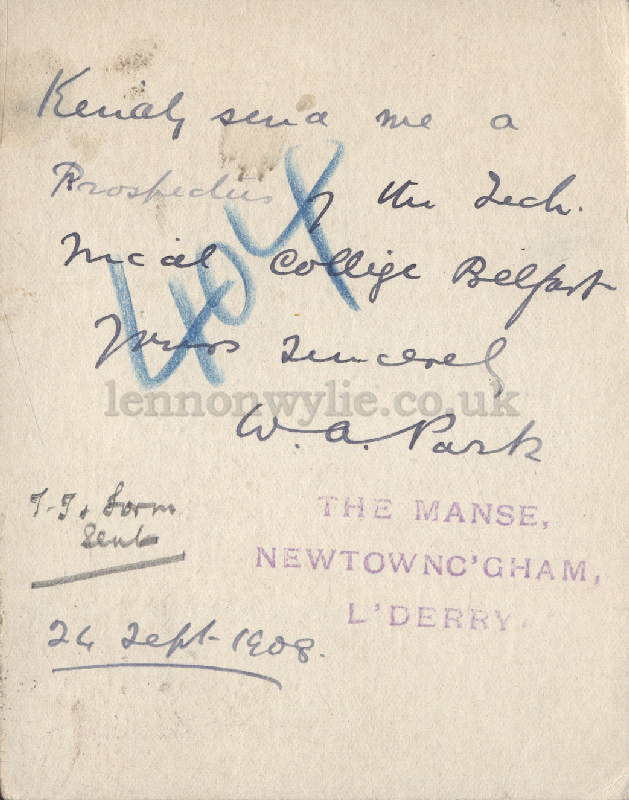 Kindly send me a
Prospectus of the Tech.
nical College Belfast
404
Yours Sincerely
lennonwylie.co.uk
W. A. Park
T.T. & Form
Sent
THE MANSE,
NEWTOWNC'GHAM,
L'DERRY.
24 Sept. 1908.